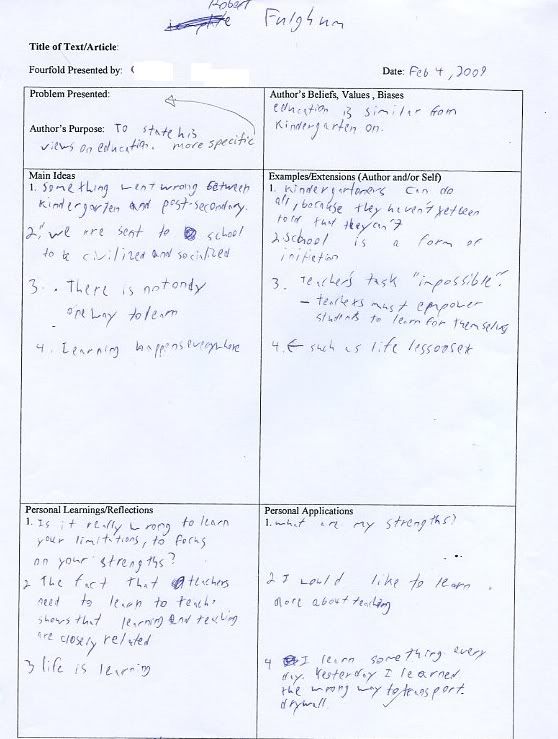 Robert
Fulghum
Title of Text/Article:
Fourfold Presented by: (
Date: Feb 4, 2009
Problem Presented:
Author's Purpose: To state his
views on education. more specific
Author's Beliefs, Values, Biases
education is similar from
Kindergarten on.
Main Ideas
1. Something went wrong between
Kindergarten and post-secondary.
2. "we are sent to school
to be civilized and socialized
3. . There is not only
one way to learn
4. Learning happens everywhere
Examples/Extensions (Author and/or Self)
1. Kindergarteners can do
all, because they haven't yet been
told that they can't
2. School is a form of
initiation
3. Teacher's task "impossible".
- teachers must empower
students to learn for themselves
4. ← such as life lessons
Personal Learnings/Reflections
1. Is it really wrong to learn
your limitations, to focus
on your strengths?
2 The fact that teachers
need to learn to teach
shows that learning and teaching
are closely related
3 life is learning
Personal Applications
1. what are my strengths?
2 I would like to learn
more about teaching
4 I learn something every
day. Yesterday I learned
the wrong way to transport
drywall